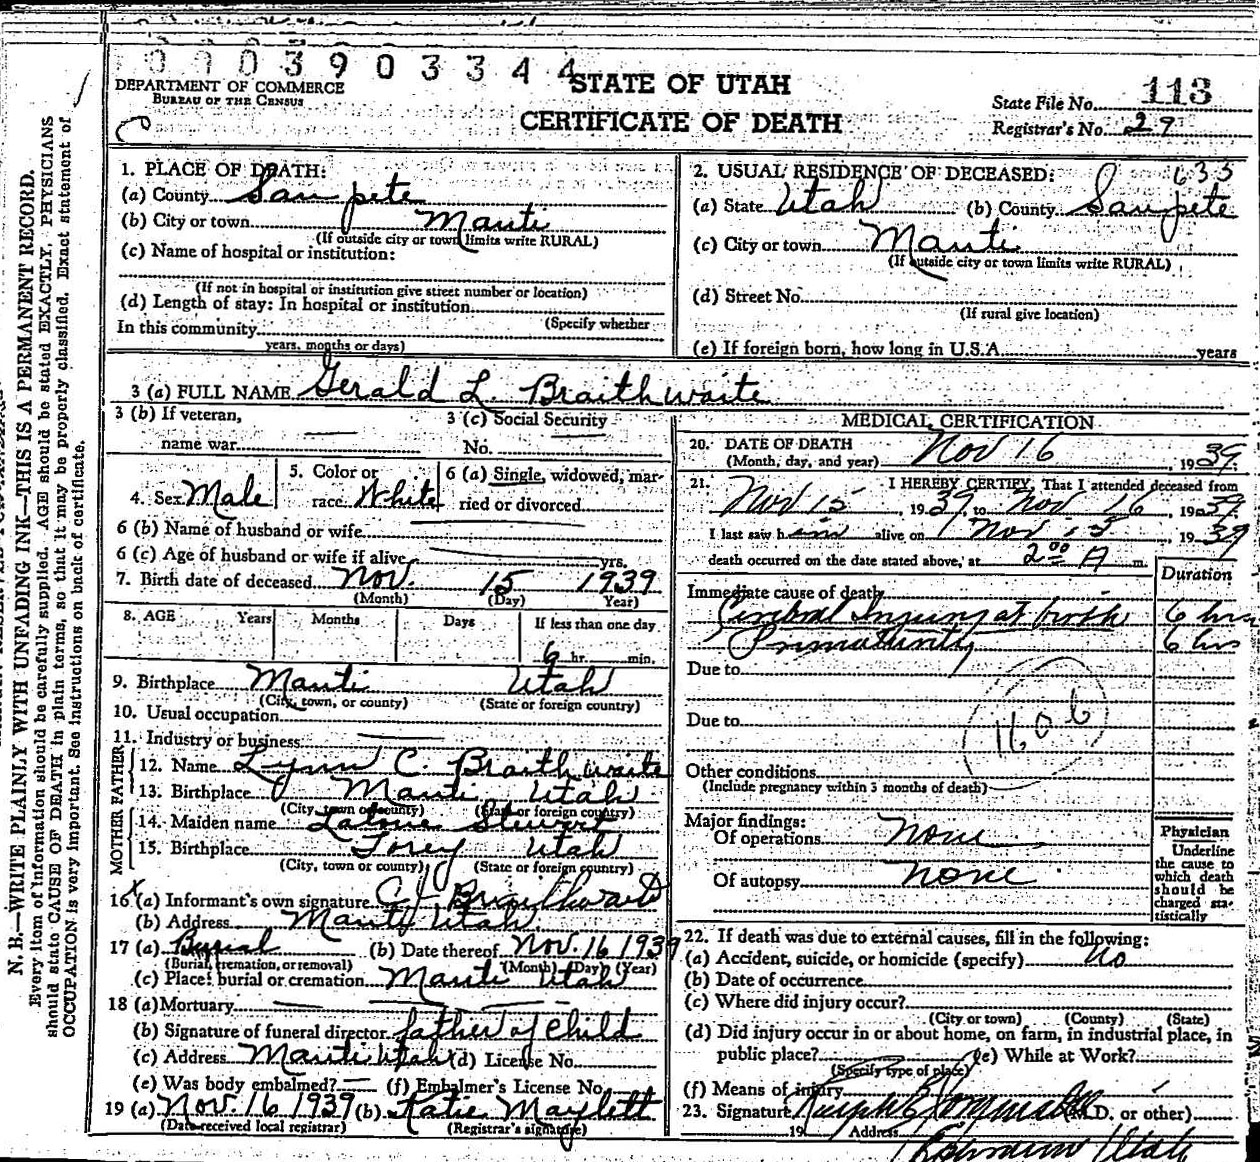 0 9 0 3 9 0 3 3 4 4
DEPARTMENT OF COMMERCE
BUREAU OF THE CENSUS
STATE OF UTAH
CERTIFICATE OF DEATH
State File No. 113
Registrar's No. 29
N. B.—WRITE PLAINLY WITH UNFADING INK—THIS IS A PERMANENT RECORD.
Every item of information should be carefully supplied. AGE should be stated EXACTLY. PHYSICIANS
should state CAUSE OF DEATH in plain terms, so that it may be properly classified. Exact statement of
OCCUPATION is very important. See instructions on back of certificate.
1. PLACE OF DEATH:
(a) County Sanpete
(b) City or town Manti
(If outside city or town limits write RURAL)
(c) Name of hospital or institution:
(If not in hospital or institution give street number or location)
(d) Length of stay: In hospital or institution
(Specify whether
In this community
years, months or days)
2. USUAL RESIDENCE OF DECEASED: 635
(a) State Utah (b) County Sanpete
(c) City or town Manti
(If outside city or town limits write RURAL)
(d) Street No.
(If rural give location)
(e) If foreign born, how long in U.S.A. years
3 (a) FULL NAME Gerald L. Braithwaite
3 (b) If veteran,
name war
3 (c) Social Security
No.
4. Sex Male
5. Color or
race White
6 (a) Single, widowed, mar-
ried or divorced
6 (b) Name of husband or wife
6 (c) Age of husband or wife if alive yrs.
7. Birth date of deceased Nov. 15 1939
(Month) (Day) Year)
8. AGE Years Months Days If less than one day
6 hr. min.
9. Birthplace Manti Utah
(City, town, or county) (State or foreign country)
10. Usual occupation
11. Industry or business
FATHER
12. Name Lynn C. Braithwaite
13. Birthplace Manti Utah
(City, town or county) (State or foreign country)
MOTHER
14. Maiden name Stewart
15. Birthplace Torey Utah
(City, town or county) (State or foreign country)
16 (a) Informant's own signature C Braithwaite
(b) Address Manti Utah
17 (a) Burial (b) Date thereof Nov. 16 1939
(Burial, cremation, or removal) (Month) (Day) (Year)
(c) Place: burial or cremation Manti Utah
18 (a) Mortuary
(b) Signature of funeral director father of child
(c) Address Manti Utah (d) License No.
(e) Was body embalmed? (f) Embalmer's License No.
19 (a) Nov. 16 1939 (b) Katie Maylett
(Date received local registrar) (Registrar's signature)
MEDICAL CERTIFICATION
20. DATE OF DEATH
(Month, day, and year) Nov 16, 1939
21. I HEREBY CERTIFY, That I attended deceased from
Nov 15, 1939, to Nov 16, 1939.
I last saw him alive on Nov 15, 1939
death occurred on the date stated above, at 2 00 A m.
Duration
Immediate cause of death
Cerebral Injury at birth 6 hrs
Prematurity 6 hrs
Due to
Due to
Other conditions
(Include pregnancy within 3 months of death)
Major findings:
Of operations none
Of autopsy none
Physician
Underline
the cause to
which death
should be
charged sta-
tistically
22. If death was due to external causes, fill in the following:
(a) Accident, suicide, or homicide (specify) no
(b) Date of occurrence
(c) Where did injury occur?
(City or town) (County) (State)
(d) Did injury occur in or about home, on farm, in industrial place, in
public place? (e) While at Work?
(Specify type of place)
(f) Means of injury
23. Signature (M.D. or other)
19 Address
Utah